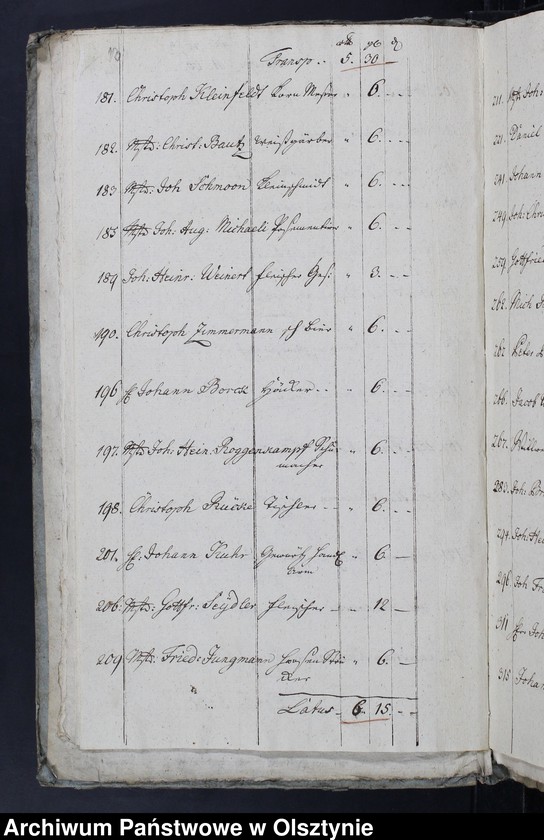 Transp. .. 5. 30 —
181. Christoph Kleinfeldt Korn Messer " 6. — —
182. Mstr: Christ: Bautz Weißgärber " 6. — —
183 Mstr: Joh Schmoon Kleinschmidt " 6. — —
185 Mstr Joh: Aug: Michaeli Posementier " 6. — —
189 Joh: Heinr: Weinert Fleischer Ges: " 3. — —
190. Christoph Zimmermann " 6. — —
196 Johann Borck Höcker .. " 6. — —
197. Mstr Joh: Hein. Roggenkampf Schu-
macher " 6. — —
198. Christoph Tischler — " 6. — —
201. Johann Kuhr Gewürtz " 6. —
206. Mstr: Gottfr: Seydler Fleischer — " 12 —
209 Mstr: Fried: Jungmann " 6. —
Latus — 6. 15. — —
211.
221. Daniel
241. Johann
249. Joh: Chri
259. Gottfried
262. Mich
262. Peter
266. Jacob
267.
283. Joh:
294. Joh: Hei
296 Joh Fr
311 Joh
315 Johan
Archiwum Państwowe w Olsztynie